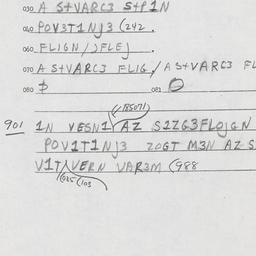 030 A S+VARC3 S+P1N
040 POV3T1NJ3 (242.
060 FLIGN/JFLEJ.
070 A S+VARC3 FLIG/AS+VARC3 FL
080 $ 081 O
(85071)
901 1N VESN1 AZ S2ZG3FLOJGN
POV1T1NJ3 ZOGT M3N AZ S
V1T VERN VAR3M (988
(625 (103